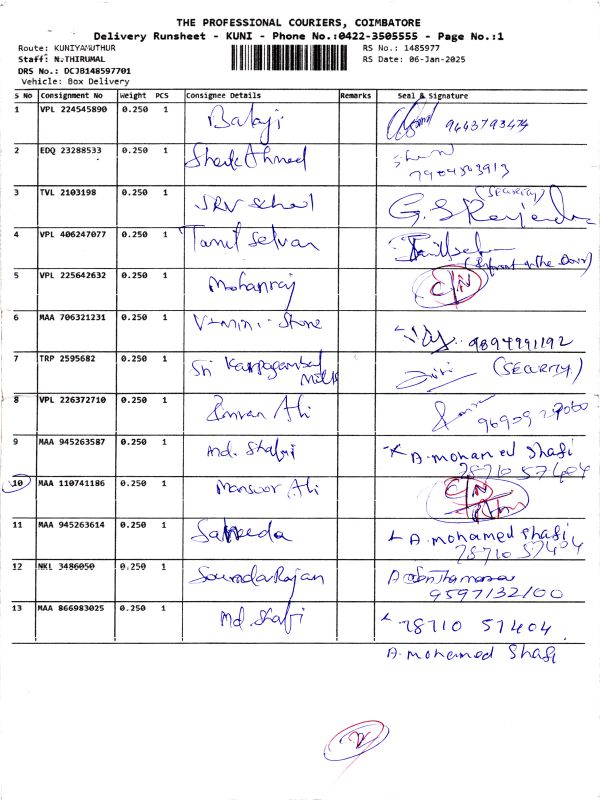 THE PROFESSIONAL COURIERS, COIMBATORE
Delivery Runsheet - KUNI - Phone No.:0422-3505555 - Page No.:1
Route: KUNIYAMUTHUR RS No.: 1485977
Staff: N.THIRUMAL RS Date: 06-Jan-2025
DRS No.: DCJB148597701
Vehicle: Box Delivery
S No Consignment No Weight PCS Consignee Details Remarks Seal & Signature
1 VPL 224545890 0.250 1 Balaji 9443793474
2 EDQ 23288533 0.250 1 Sheik Ahmed
7904503913
3 TVL 2103198 0.250 1 SRV School (Security)
G.S Rajendra
4 VPL 406247077 0.250 1 Tamil Selvan
5 VPL 225642632 0.250 1 Mohanraj C/N
6 MAA 706321231 0.250 1 Stone 9894991192
7 TRP 2595682 0.250 1 Sri Karpagambal Mills (SECURITY)
8 VPL 226372710 0.250 1 Imran Ali
9 MAA 945263587 0.250 1 Md. Shafi A. mohamed Shafi
78710 57404
10 MAA 110741186 0.250 1 Mansoor Ali C/N
11 MAA 945263614 0.250 1 Saheeda A. mohamed Shafi
78710 57404
12 NKL 3486050 0.250 1 SoundaRajan
9597132100
13 MAA 866983025 0.250 1 Md. Shafi 78710 57404
A. mohamed Shafi